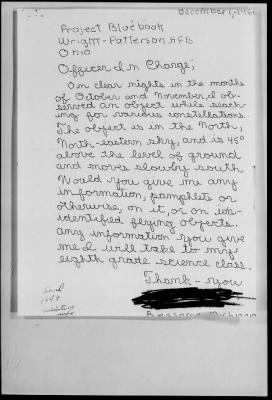 December 1, 196
Project Bluebook
Wright-Patterson AFB
Ohio
Officer In Charge;
On clear nights in the months
of October and November, I ob-
served an object while seach-
ing for various constellations.
The object is in the North,
North-eastern sky, and is 45°
above the level of ground
and moves slowly south
Would you give me any
information, pamphlets or
otherwise, on it, or on un-
identified flying objects.
Any information you give
me I will take to my
eighth grade science class.
Thank-you
Bessemer Michigan